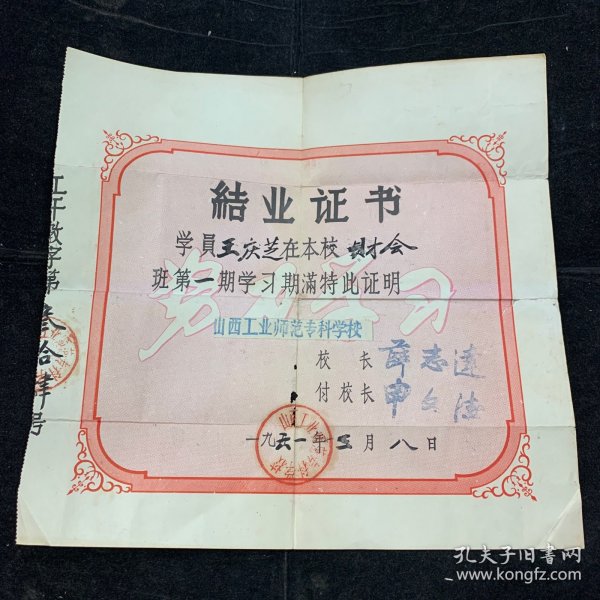 結业证书
学員王庆芝在本校財会
班第一期学习期滿特此证明
努力学习
山西工业师范专科学校
校 长 薛志远
付校长 申
一九六一年三月八日
叁拾肆号
孔夫子旧書网
www.kongfz.com